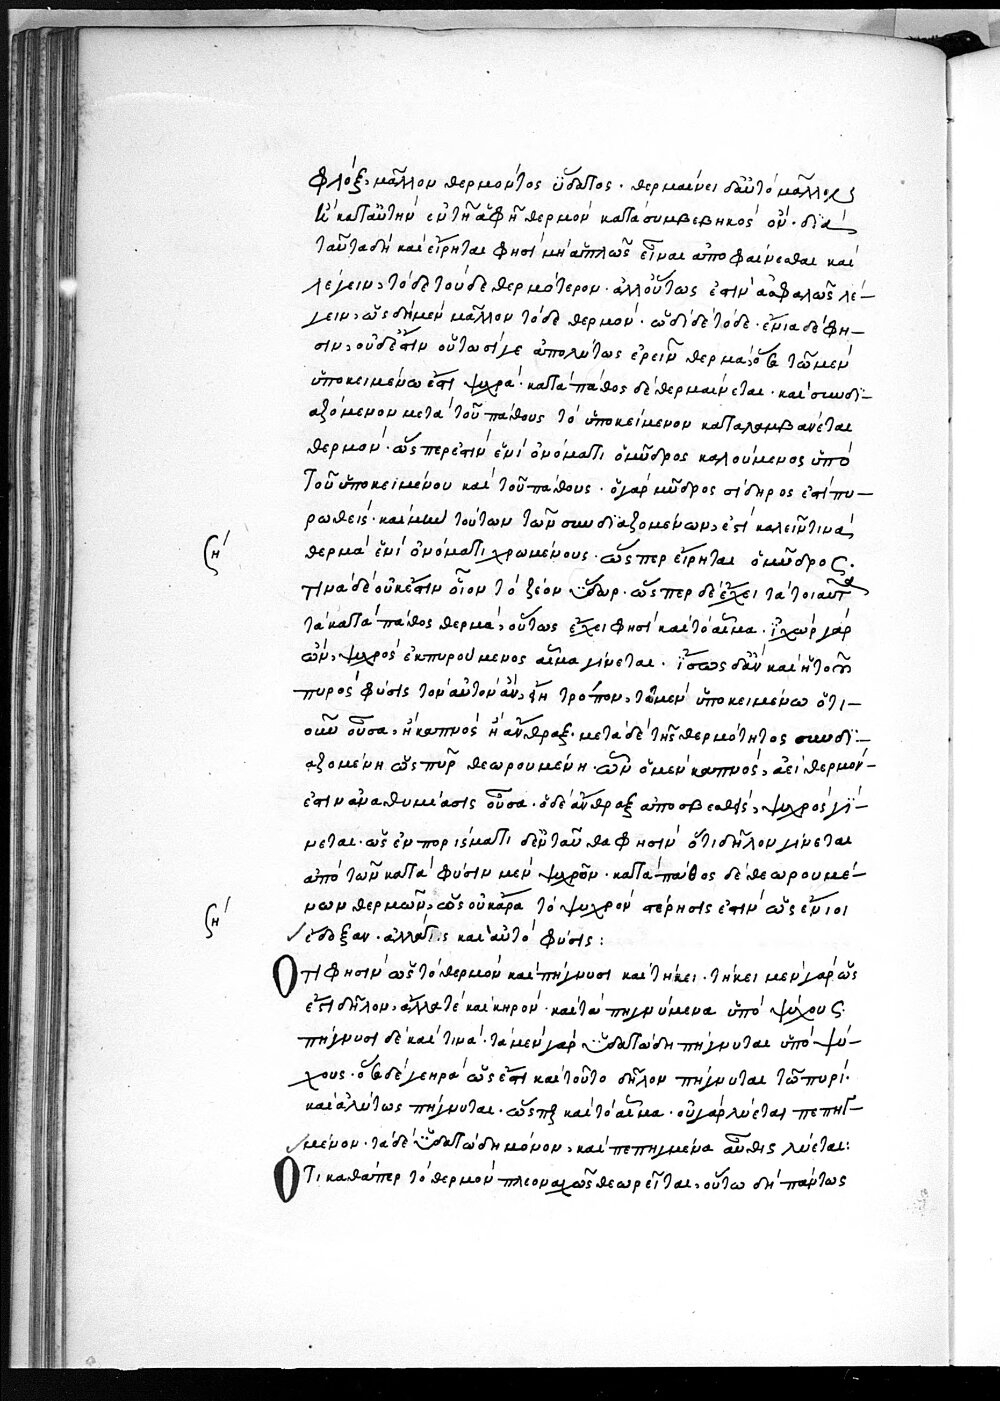 φλόξ, μᾶλλον θερμοῦντος ὕδατος· θερμαίνει δ' αὐτὸ μᾶλλον
κατ' αὐτὴν ἐν τῇ ἁφῇ θερμὸν κατὰ συμβεβηκὸς ὄν· διὰ
ταῦτα δὴ καὶ εἴρηται φησὶ μὴ ἁπλῶς εἶναι ἀποφαίνεσθαι καὶ
λέγειν, τόδε τοῦδε θερμότερον· ἀλλ' οὕτως ἐστὶν ἀσφαλῶς λέ-
γειν, ὡς δὴ μὲν μᾶλλον τόδε θερμόν· ὡδὶ δὲ τόδε· ἔνια δέ φη-
σιν, οὐδ' ἔστιν οὕτωσί γε ἀπολύτως ἐρεῖν θερμά, ὅσα τῶ μὲν
ὑποκειμένω ἐστὶ ψυχρά· κατὰ πάθος δὲ θερμαίνεται· καὶ συνδυ-
αζόμενον μετὰ τοῦ πάθους τὸ ὑποκείμενον καταλαμβάνεται
θερμόν· ὥσπερ ἐστὶν ἑνὶ ὀνόματι ὁ μύδρος καλούμενος ὑπὸ
τοῦ ὑποκειμένου καὶ τοῦ πάθους· ὁ γὰρ μύδρος σίδηρος ἐστὶ πυ-
ρωθείς· καὶ μὴν τούτων τῶν συνδυαζομένων, ἔστι καλεῖν τινὰ
θερμὰ ἑνὶ ὀνόματι χρωμένους· ὥσπερ εἴρηται ὁ μύδρος·
τινὰ δὲ οὐκ ἔστιν οἷον τὸ ζέον ὕδωρ· ὥσπερ δὲ ἔχει τὰ τοιαῦτα
τὰ κατὰ πάθος θερμά, οὕτως ἔχει φησὶ καὶ τὸ αἷμα· ἰχὼρ γὰρ
ὤν, ψυχρὸς ἐκπυρούμενος αἷμα γίνεται· ἴσως δ' ἂν καὶ ἡ τοῦ
πυρὸς φύσις τὸν αὐτὸν ἂν ἔχη τρόπον, τῶ μὲν ὑποκειμένω ὅτι-
οῦν οὖσα, ἢ καπνὸς ἢ ἄνθραξ· μετὰ δὲ τῆς θερμότητος συνδυ-
αζομένη ὡς πῦρ θεωρουμένη· ὧν ὁ μὲν καπνός, ἀεὶ θερμόν
ἐστιν ἀναθυμίασις οὖσα· ὁ δὲ ἄνθραξ ἀποσβεσθείς, ψυχρὸς γί-
νεται· ὡς ἐν πορίσματι δ' ἐνταῦθα φησὶν ὅτι δῆλον γίνεται
ἀπὸ τῶν κατὰ φύσιν μὲν ψυχρῶν· κατὰ πάθος δὲ θεωρουμέ-
νων θερμῶν, ὡς οὐκ ἄρα τὸ ψυχρὸν στέρησις ἐστὶν ὡς ἔνιοι
ἔδοξαν· ἀλλά τις καὶ αὐτὸ φύσις:
Ὅτι φησὶν ὡς τὸ θερμὸν καὶ πήγνυσι καὶ τήκει· τήκει μὲν γὰρ ὡς
ἔστι δῆλον, ἄλλα τὲ καὶ κηρόν· καὶ τὰ πηγνύμενα ὑπὸ ψύχους
πήγνυσι δὲ καὶ τινά· τὰ μὲν γὰρ ὑδατώδη πήγνυται ὑπὸ ψύ-
χους· ὅσα δὲ γεηρὰ ὡς ἔστι καὶ τοῦτο δῆλον πήγνυται τῶ πυρί·
καὶ ἀλύτως πήγνυται· ὥσπερ καὶ τὸ αἷμα· οὐ γὰρ λύεται πεπηγ-
μένον· τὰ δὲ ὑδατώδη μόνον, καὶ πεπηγμένα αὖθις λύεται:
Ὅτι καθάπερ τὸ θερμὸν πλεοναχῶς θεωρεῖται, οὕτω δὴ πάντως
ση
ση